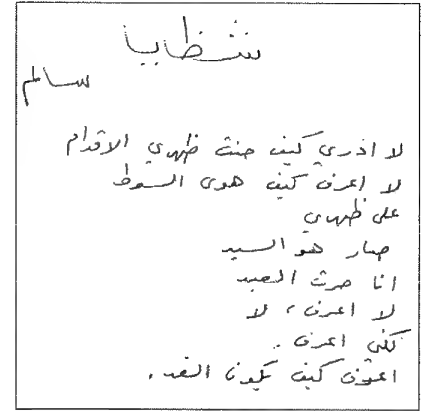 شظايا
سالم
لا ادري كيف حنت ظهري الاقدام
لا اعرف كيف هوى السوط
على ظهري
صار هو السيد
انا صرت العبد
لا اعرف ، لا
لكني اعرف .
اعرف كيف يكون الغد .